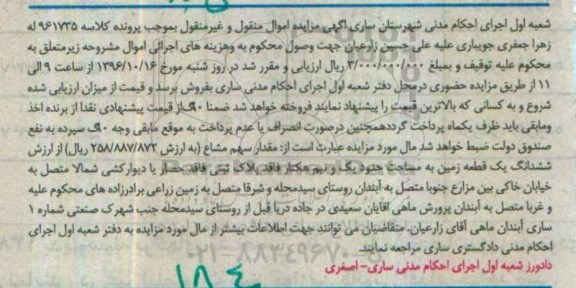 شعبه اول اجرای احکام مدنی شهرستان ساری آگهی مزایده اموال منقول و غیرمنقول بموجب پرونده کلاسه ۹۶۱۷۳۵ له
زهرا جعفری جویباری علیه علی حسین زارعیان جهت وصول محکوم به وهزینه های اجرائی اموال مشروحه زیرمتعلق به
محکوم علیه توقیف و بمبلغ ۳/۰۰۰/۰۰۰/۰۰۰ ریال ارزیابی و مقرر شد در روز شنبه مورخ ۱۳۹۶/۱۰/۱۶ از ساعت ۹ الی
۱۱ از طریق مزایده حضوری درمحل دفتر شعبه اول اجرای احکام مدنی ساری بفروش برسد و قیمت از میزان ارزیابی شده
شروع و به کسانی که بالاترین قیمت را پیشنهاد نمایند فروخته خواهد شد ضمنا ۱۰٪ از قیمت پیشنهادی نقدا از برنده اخذ
ومابقی باید ظرف یکماه پرداخت گرددهمچنین درصورت انصراف یا عدم پرداخت به موقع مابقی وجه ۱۰٪ سپرده به نفع
صندوق دولت ضبط خواهد شد. مال مورد مزایده عبارت است از: مقدار سهم مشاع (به ارزش ۲۵۸/۸۸۷/۸۷۲ ریال) از ارزش
ششدانگ یک قطعه زمین به مساحت حدود یک و نیم هکتار فاقد پلاک ثبتی فاقد حصار یا دیوارکشی شمالا متصل به
خیابان خاکی بین مزارع جنوبا متصل به آبندان روستای سیدمحله و شرقا متصل به زمین زراعی برادرزاده های محکوم علیه
و غربا متصل به آبندان پرورش ماهی آقایان سعیدی در جاده دریا قبل از روستای سیدمحله جنب شهرک صنعتی شماره ۱
ساری آبندان ماهی آقای زارعیان. متقاضیان می توانند جهت اطلاعات بیشتر از مال مورد مزایده به دفتر شعبه اول اجرای
احکام مدنی دادگستری ساری مراجعه نمایند.
دادورز شعبه اول اجرای احکام مدنی ساری- اصغری
۱۸۴